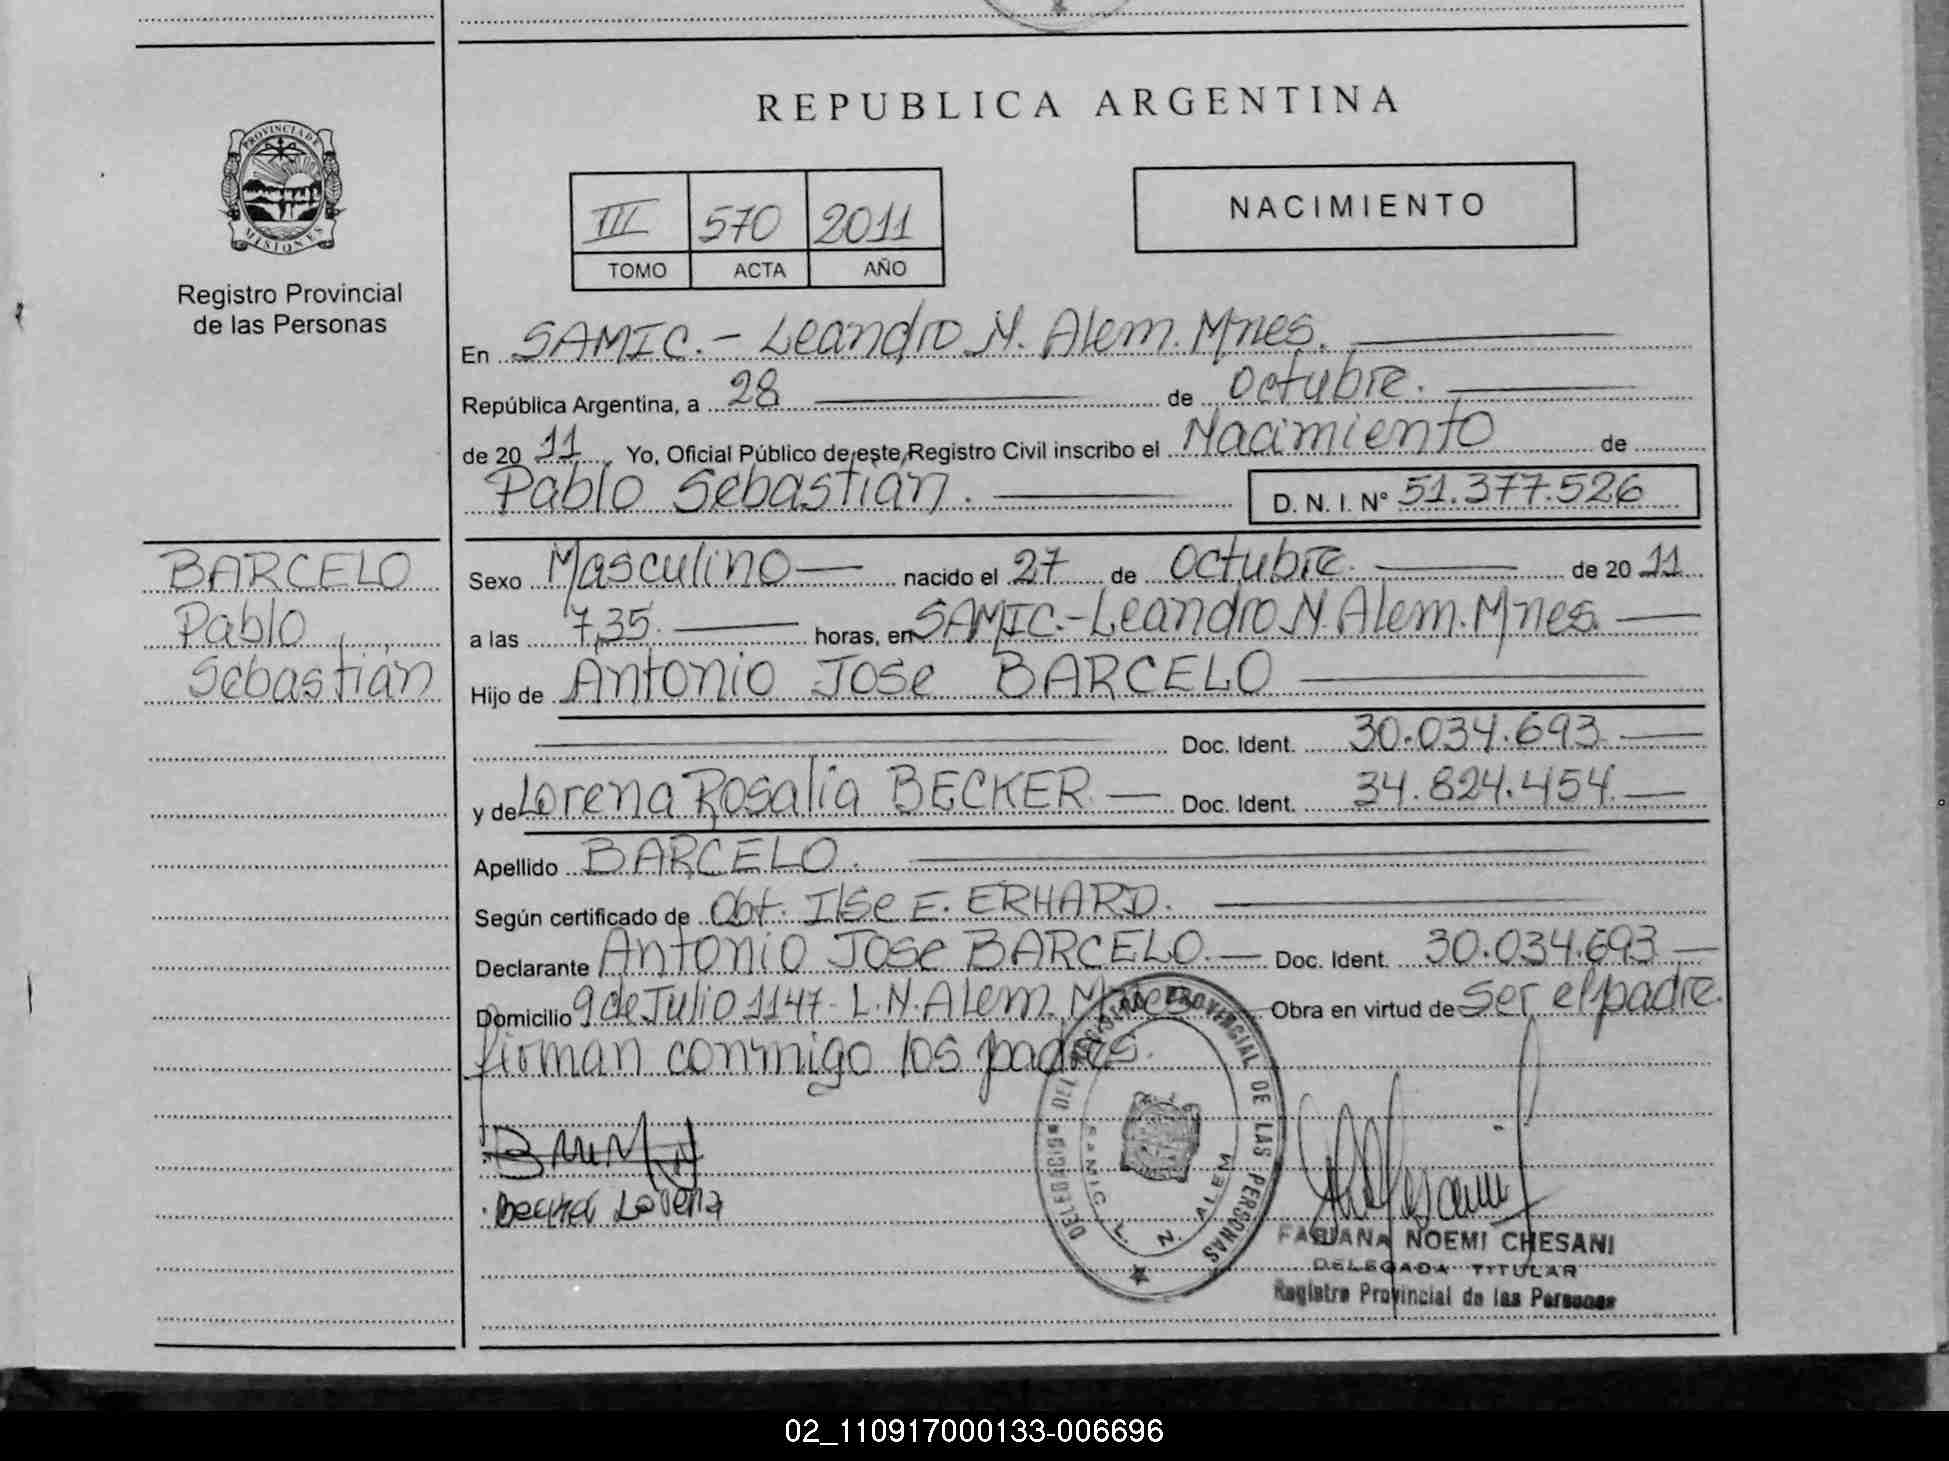 REPUBLICA ARGENTINA
PROVINCIA DE
MISIONES
Registro Provincial
de las Personas
III 570 2011
TOMO ACTA AÑO
NACIMIENTO
En SAMIC.- Leandro N. Alem. Mnes.
República Argentina, a 28 de octubre.
de 20 11 Yo, Oficial Público de este Registro Civil inscribo el Nacimiento de
Pablo Sebastián. D. N. I. Nº 51.377.526
BARCELO
Pablo
Sebastián
Sexo Masculino nacido el 27 de octubre. de 20 11
a las 7,35. horas, en SAMIC.-Leandro N. Alem. Mnes.
Hijo de Antonio Jose BARCELO
Doc. Ident. 30.034.693
y de Lorena Rosalia BECKER. Doc. Ident. 34.824.454.
Apellido BARCELO.
Según certificado de Obt. Ilse E. ERHARD.
Declarante Antonio Jose BARCELO. Doc. Ident. 30.034.693
Domicilio 9 de Julio 1147- L.N. Alem. Mnes Obra en virtud de Ser el padre.
firman conmigo los padres.
DELEGACION DEL REGISTRO PROVINCIAL DE LAS PERSONAS
SAMIC L. N. ALEM
Lorena
FABIANA NOEMI CHESANI
DELEGADA TITULAR
Registro Provincial de las Personas
02_110917000133-006696